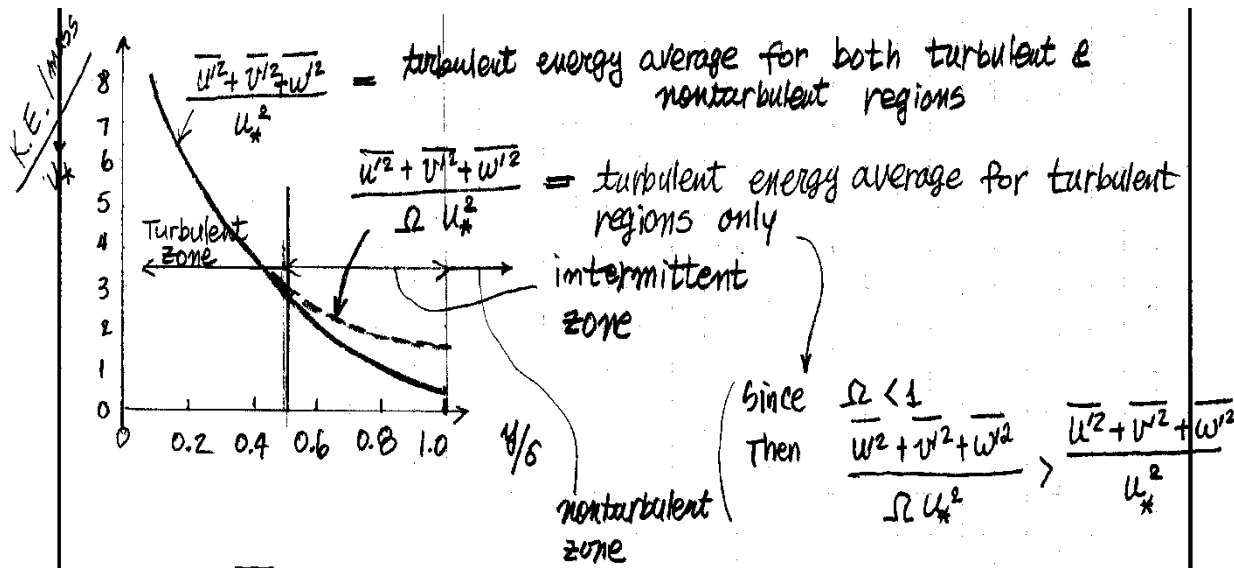 K.E./mass
u*
8
7
6
5
4
3
2
1
0
0 0.2 0.4 0.6 0.8 1.0 y/δ
(u'² + v'² + w'²)/u*² = turbulent energy average for both turbulent &
nonturbulent regions
(u'² + v'² + w'²)/(Ω u*²) = turbulent energy average for turbulent
regions only
Turbulent
zone
intermittent
zone
nonturbulent
zone
Since Ω < 1
Then (u'² + v'² + w'²)/(Ω u*²) > (u'² + v'² + w'²)/u*²